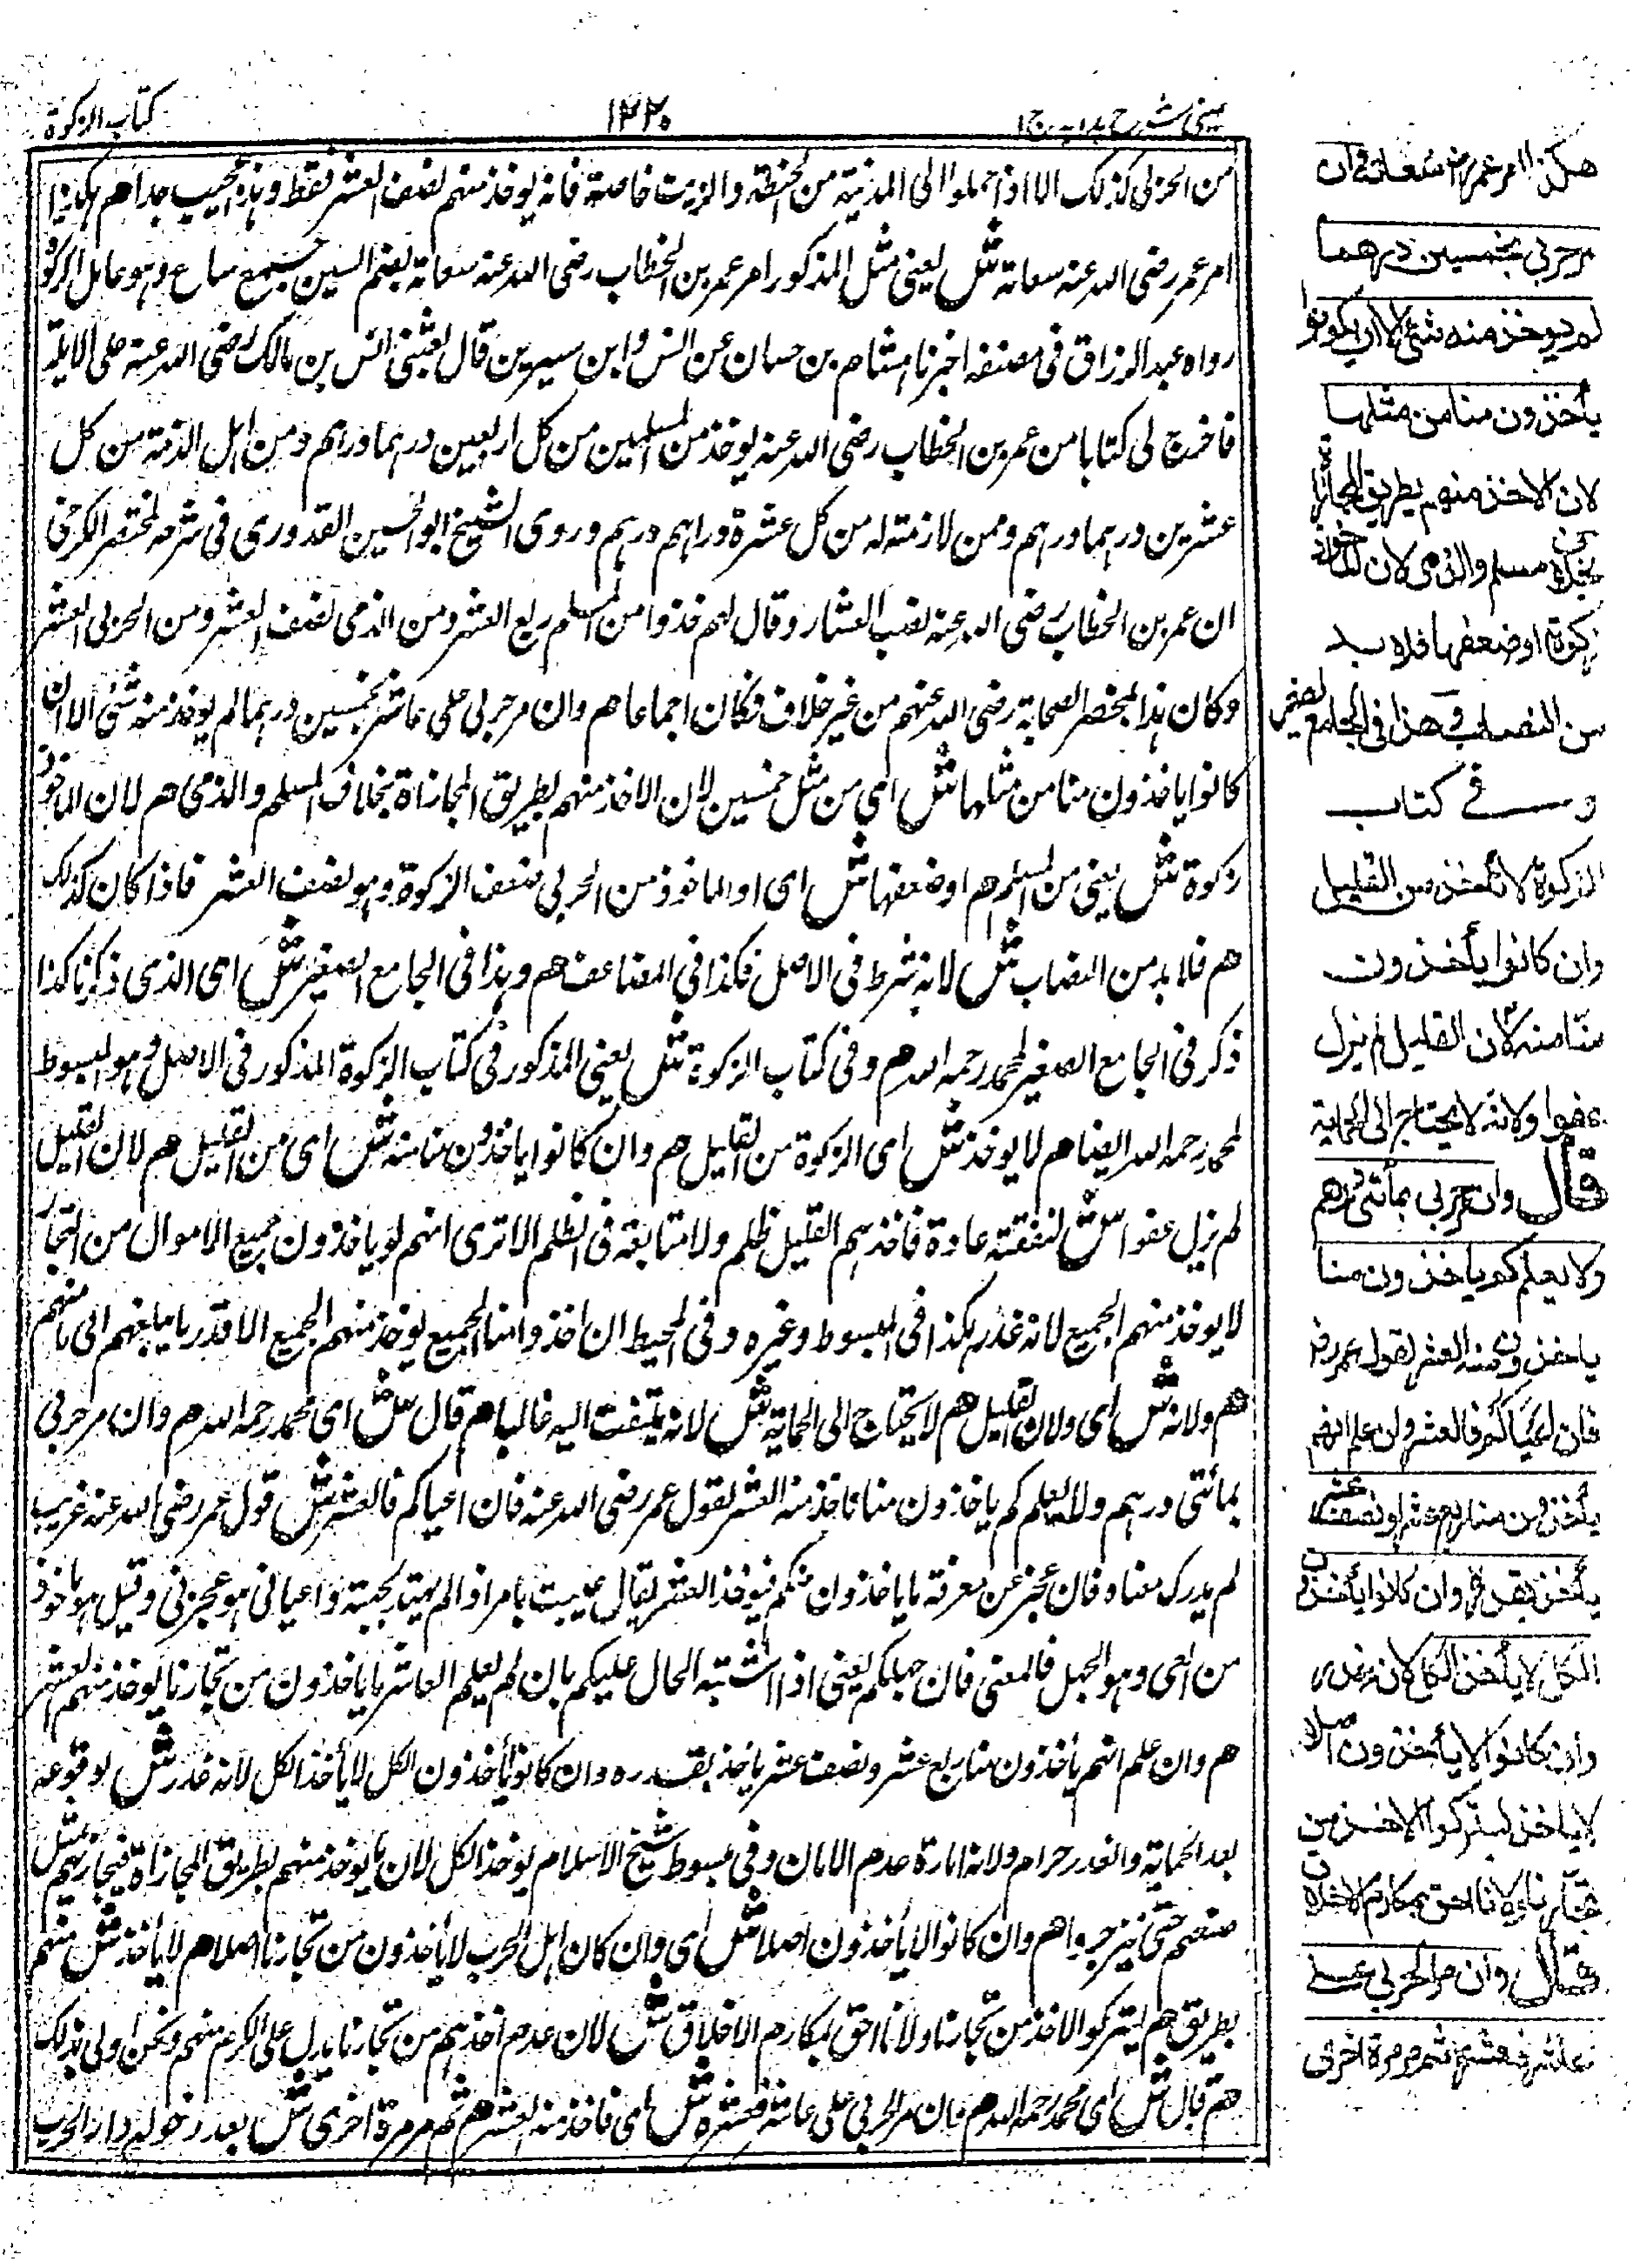 عينى شرح هدايه ج١
١٢٢٠
كتاب الزكوة
من الحربى كذلك الا اذا حملوا الى المدينة من الحنطة والزيت خاصة فانه يوخذ منهم نصف العشر فقط وهذا عجيب جدا هم هكذا
امر عمر رضى الله عنه سعاته ش يعنى مثل المذكور امر عمر بن الخطاب رضى الله عنه سعاته بضم السين جمع ساع وهو عامل الزكوة
رواه عبد الرزاق فى مصنفه اخبرنا هشام بن حسان عن انس وابن سيرين قال بعثنى انس بن مالك رضى الله عنه على الايلة
فاخرج لى كتابا من عمر بن الخطاب رضى الله عنه يوخذ من المسلمين من كل اربعين درهما درهم ومن اهل الذمة من كل
عشرين درهما درهم وممن لا ذمة له من كل عشرة دراهم درهم وروى الشيخ ابو الحسين القدورى فى شرحه لمختصر الكرخى
ان عمر بن الخطاب رضى الله عنه نصب العشار وقال لهم خذوا من المسلم ربع العشر ومن الذمى نصف العشر ومن الحربى العشر
وكان هذا بمحضر الصحابة رضى الله عنهم من غير خلاف فكان اجماعا هم وان مر حربى على عاشر بخمسين درهما لم يوخذ منه شئ الا ان
كانوا ياخذون منا من مثلها ش اى من مثل خمسين لان الاخذ منهم بطريق المجازاة بخلاف المسلم والذمى هم لان الماخوذ
زكوة ش يعنى من المسلم هم او ضعفها ش اى او الماخوذ من الحربى ضعف الزكوة وهو نصف العشر فاذا كان كذلك
هم فلا بد من النصاب ش لانه شرط فى الاصل فكذا فى المضاعف هم وهذا فى الجامع الصغير ش اى الذى ذكرنا كذا
ذكر فى الجامع الصغير لمحمد رحمه الله هم وفى كتاب الزكوة ش يعنى المذكور فى كتاب الزكوة المذكور فى الاصل وهو المبسوط
لمحمد رحمه الله ايضا هم لا يوخذ ش اى الزكوة من القليل هم وان كانوا ياخذون منا منه ش اى من القليل هم لان القليل
لم يزل عفوا ش لنفقته عادة فاخذهم القليل ظلم ولا متابعة فى الظلم الا ترى انهم لو ياخذون جميع الاموال من التجار
لا يوخذ منهم الجميع لانه غدر هكذا فى المبسوط وغيره وفى المحيط ان اخذوا منا الجميع يوخذ منهم الجميع الا قدر ما يبلغهم الى مامنهم
هم ولانه ش اى ولان القليل هم لا يحتاج الى الحماية ش لانه يلتفت اليه غالبا هم قال ش اى محمد رحمه الله هم وان مر حربى
بمائتى درهم ولا يعلم كم ياخذون منا ناخذ منه العشر لقول عمر رضى الله عنه فان اعياكم فالعشر ش قول عمر رضى الله عنه غريب
لم يدرك معناه فان عجز عن معرفة ما ياخذون منكم فيوخذ العشر يقال عييت بامر اذا لم يهتد لجهته واعيانى هو عجزنى وقيل هو ماخوذ
من العى وهو الجهل فالمعنى فان جهلكم يعنى اذا اشتبه الحال عليكم بان لم يعلم العاشر ما ياخذون من تجارنا يوخذ منهم العشر
هم وان علم انهم يأخذون منا ربع عشر ونصف عشر ياخذ بقدره وان كانوا يأخذون الكل لا يأخذ الكل لانه غدر ش بوقوعه
بعد الحماية والغدر حرام ولانه امارة عدم الامان وفى مبسوط شيخ الاسلام يوخذ الكل لان ما يوخذ منهم بطريق المجازاة فيجازيهم بمثل
صنعهم حتى ينزجروا هم وان كانوا لا يأخذون اصلا ش اى وان كان اهل الحرب لا يأخذون من تجارنا اصلا هم لا يأخذ ش منهم
بطريق هم ليتركوا الاخذ من تجارنا ولانا احق بمكارم الاخلاق ش لان عدم اخذهم من تجارنا يدل على الكرم منهم ونحن اولى بذلك
هم قال ش اى محمد رحمه الله هم فان مر الحربى على عاشر فعشره ش اى فاخذ منه العشر هم ثم مر مرة اخرى ش بعد دخوله دار الحرب
هكذا امر عمر رضى سعاته وان
مر حربى بخمسين درهما
لم يوخذ منه شئ الا ان يكونوا
يأخذون منا من مثلها
لان الاخذ منهم بطريق المجازاة
بخلاف مسلم والذمى لان الماخوذ
زكوة او ضعفها فلا بد
من النصاب وهذا فى الجامع الصغير
وفى كتاب
الزكوة لا تأخذ من القليل
وان كانوا يأخذون
منا منه لان القليل لم يزل
عفوا ولانه لا يحتاج الى الحماية
قال وان مر حربى بمأتى درهم
ولا يعلم كم ياخذون منا
ياخذ منه العشر لقول عمر رض
فان اعياكم فالعشر وان علم انهم
يأخذون منا ربع عشر او نصف عشر
يأخذ بقدره وان كانوا يأخذون
الكل لا يأخذ الكل لانه غدر
وان كانوا لا يأخذون اصلا
لا ياخذ ليتركوا الاخذ من
تجارنا ولانا احق بمكارم الاخلاق
قال وان مر الحربى على
عاشر فعشره ثم مر مرة اخرى